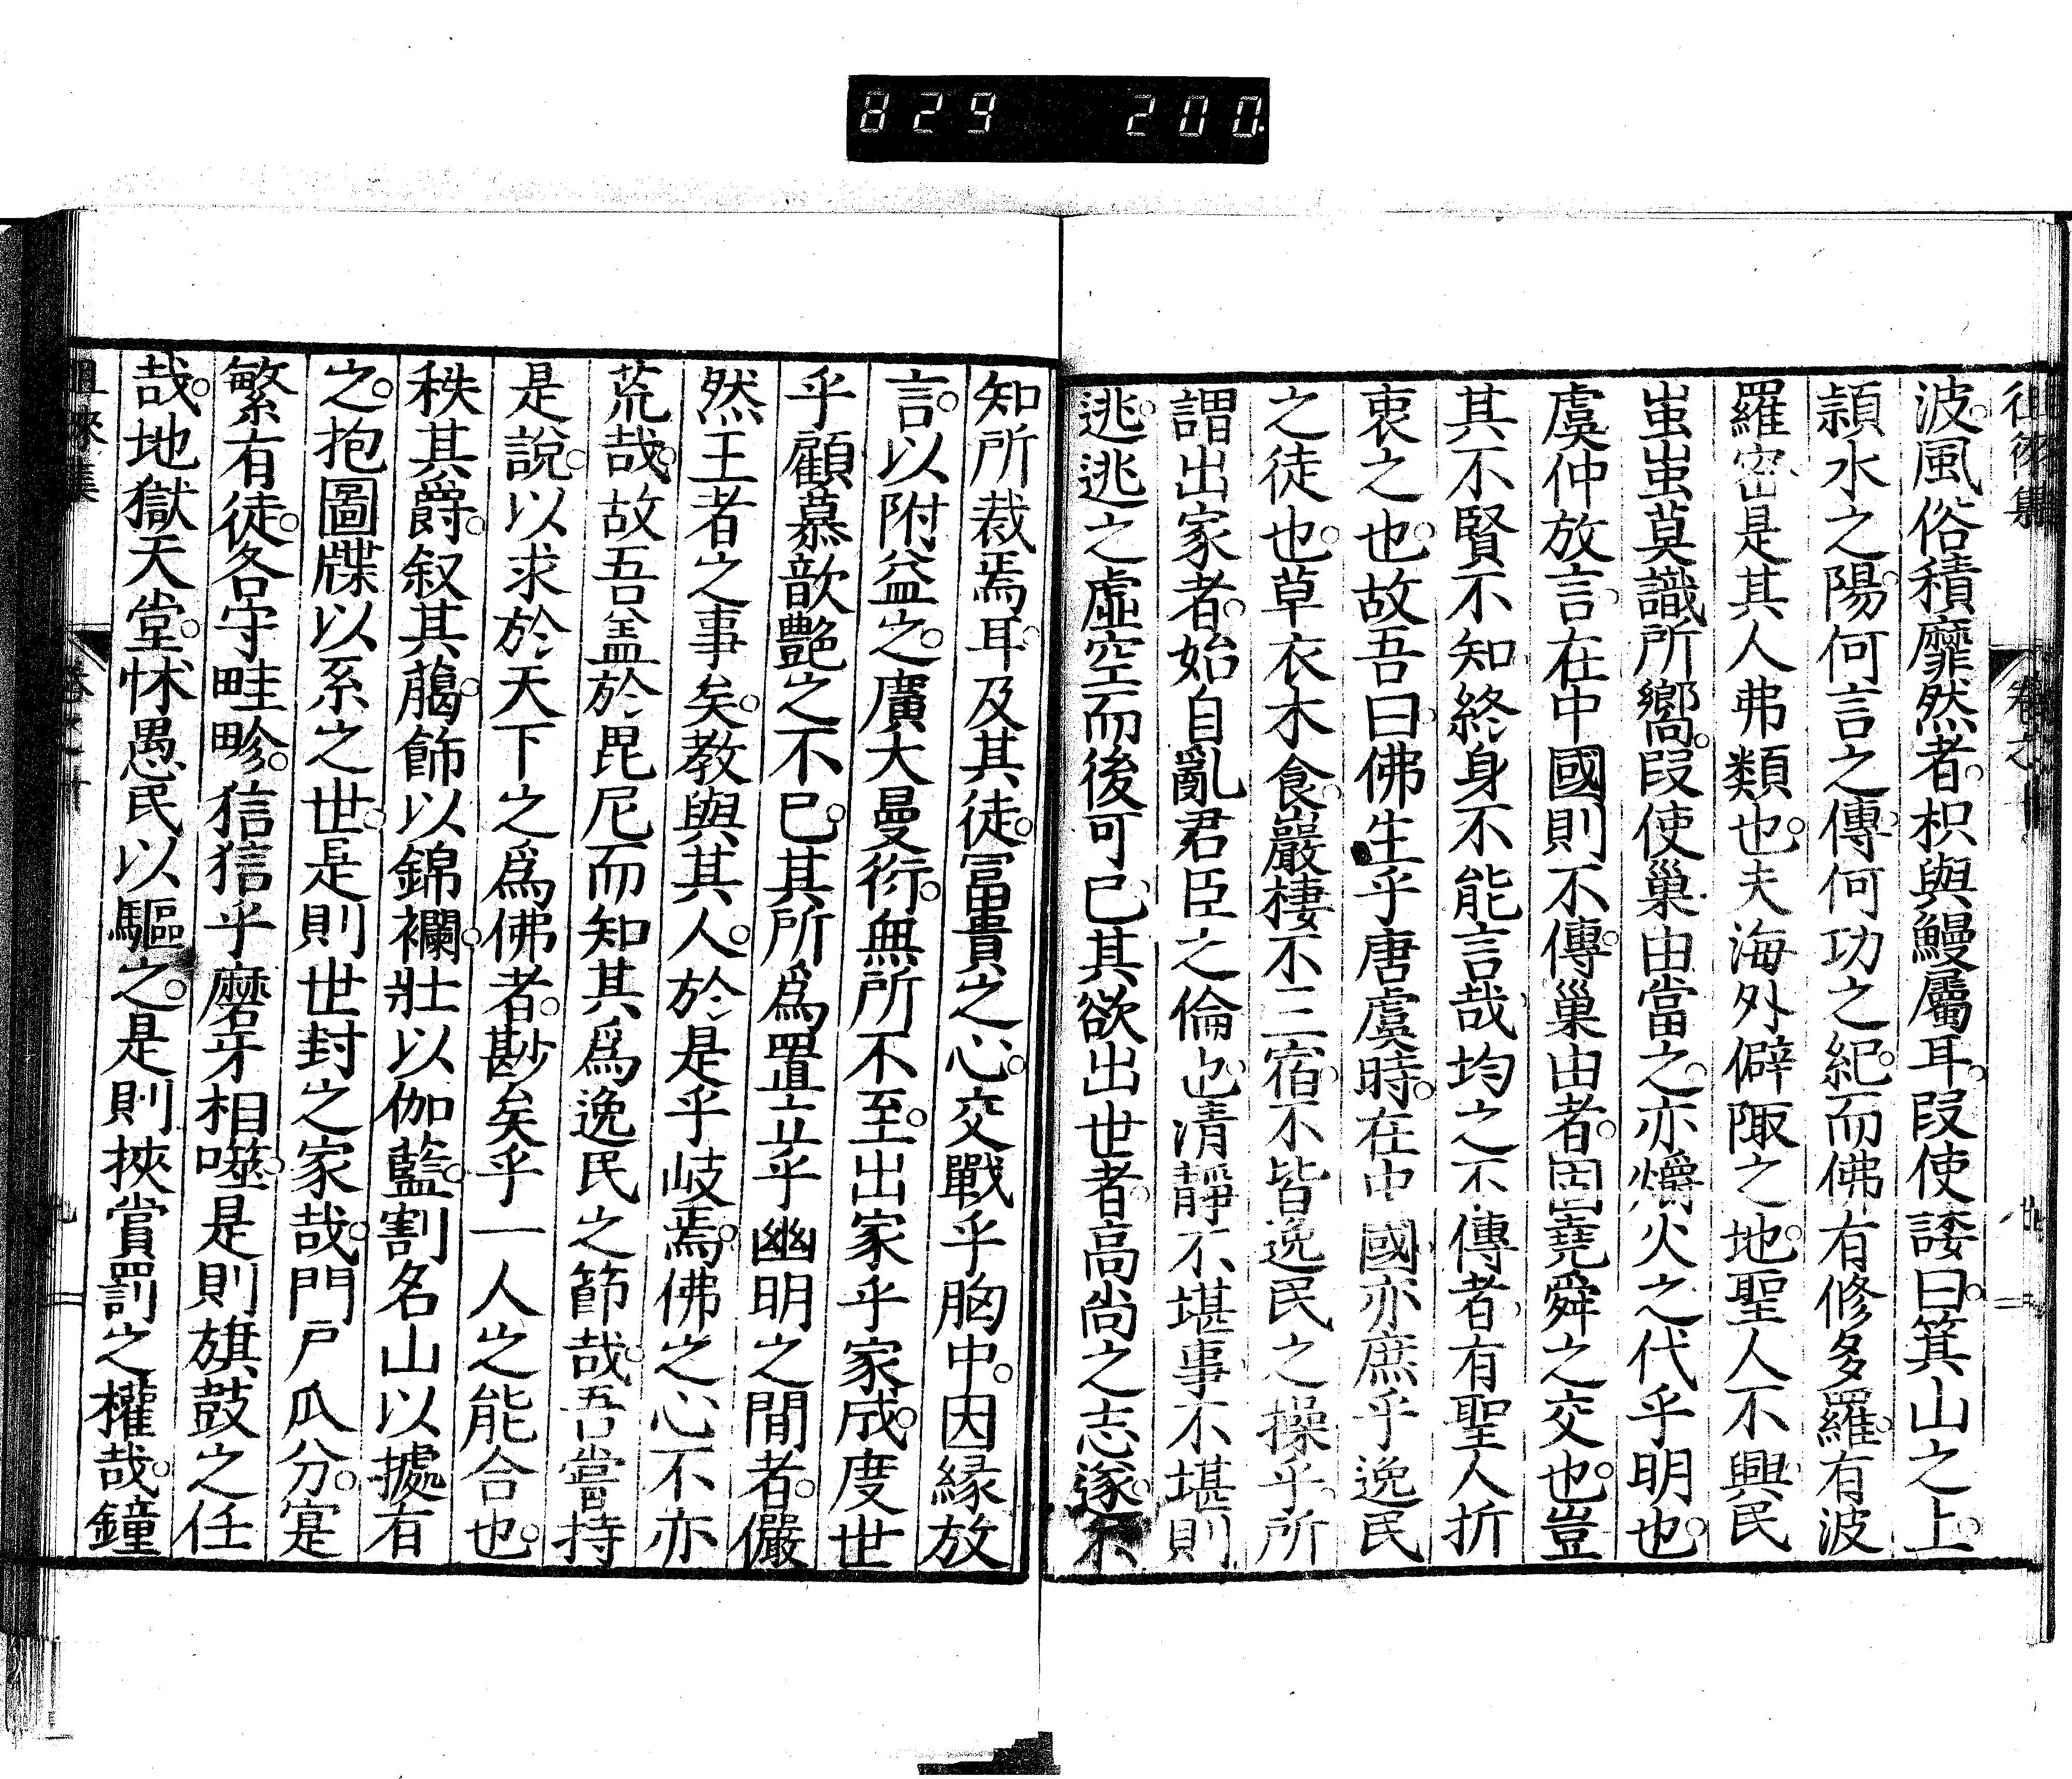 829 200.
徂徠集 卷之十
波。風俗積靡然者。枳與鰻屬耳。叚使諉曰。箕山之上。
潁水之陽。何言之傳。何功之紀。而佛有修多羅。有波
羅密。是其人弗類也。夫海外僻陬之地。聖人不興。民
蚩蚩莫識所嚮。叚使巢由當之。亦爝火之代乎明也。
虞仲放言。在中國則不傳。巢由者。罔堯舜之交也。豈
其不賢不知。終身不能言哉。均之不傳者。有聖人折
衷之也。故吾曰。佛生乎唐虞時。在中國。亦庶乎逸民
之徒也。草衣木食。巖棲不三宿。不皆逸民之操乎。所
謂出家者。始自亂君臣之倫也。清靜不堪事。不堪則
逃。逃之虛空而後可已。其欲出世者。高尚之志遂。不
知所裁焉耳。及其徒。冨貴之心。交戰乎胸中。因緣放
言。以附益之。廣大曼衍。無所不至。出家乎家成。度世
乎顧慕歆艷之不已。其所爲置立乎幽明之間者。儼
然王者之事矣。教與其人。於是乎岐焉。佛之心不亦
荒哉。故吾盖於毘尼而知其爲逸民之節哉。吾嘗持
是說。以求於天下之爲佛者。尠矣乎一人之能合也。
秩其爵。叙其﨟。飾以錦襴。壯以伽藍。割名山以據有
之。抱圖牒以系之世。是則世封之家哉。門戶瓜分。寔
繁有徒。各守畦畛。狺狺乎磨牙相噬。是則旗鼓之任
哉。地獄天堂。怵愚民以驅之。是則挾賞罰之權哉。鐘
徂徠集 卷之十 九